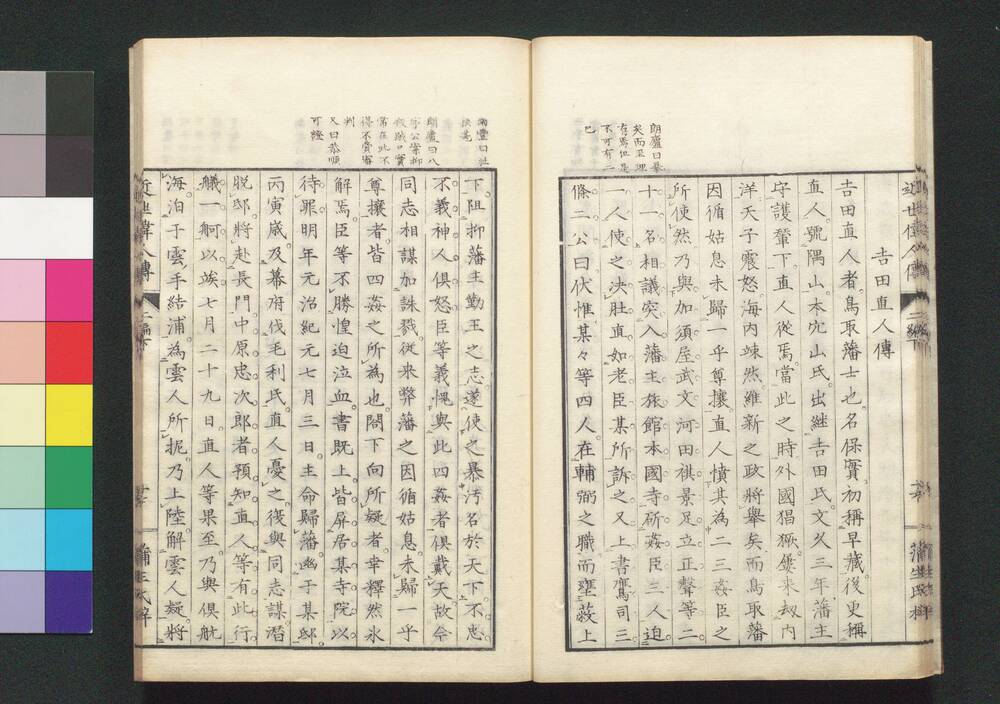 吉田直人傳
吉田直人者鳥取藩士也名保實初稱早藏後更稱
直人號隅山本宍山氏出繼吉田氏文久三年藩主
守護輦下直人從焉當此之時外國猖獗屢来刼內
洋天子震怒海內竦然維新之政將擧矣而鳥取藩
因循姑息未歸一乎尊攘直人憤其為二三姦臣之
所使然乃與加須屋武文河田祺景足立正聲等二
十一名相議突入藩主旅館本國寺斫姦臣三人迫
一人使之決肚直如老臣某所訴之又上書鷹司三
條二公曰伏惟某々等四人在輔弼之職而壅蔽上
朗廬曰暴
矣而王理
有焉但是
不可有二
已
下阻抑藩主勤王之志遂使之暴汚名於天下不忠
不義神人俱怒臣等義愧與此四姦者俱戴天故令
同志相謀加誅戮從来弊藩之因循姑息未歸一乎
尊攘者皆四姦之所為也閤下向所疑者幸釋然氷
解焉臣等不勝惶迫泣血書既上皆屏居某寺院以
待罪明年元治紀元七月三日主命歸藩幽于某邸
丙寅歲及幕府伐毛利氏直人憂之復與同志謀潛
脫邸將赴長門中原忠次郎者預知直人等有此行
艤一舸以竢七月二十九日直人等果至乃與俱航
海泊于雲手結浦為雲人所扼乃上陸解雲人疑將
朗廬曰八
字公案抑
救賊口實
常在此不
得不賞審
判
又曰恭順
可證
近世偉人傳
二編下
蒲生氏梓